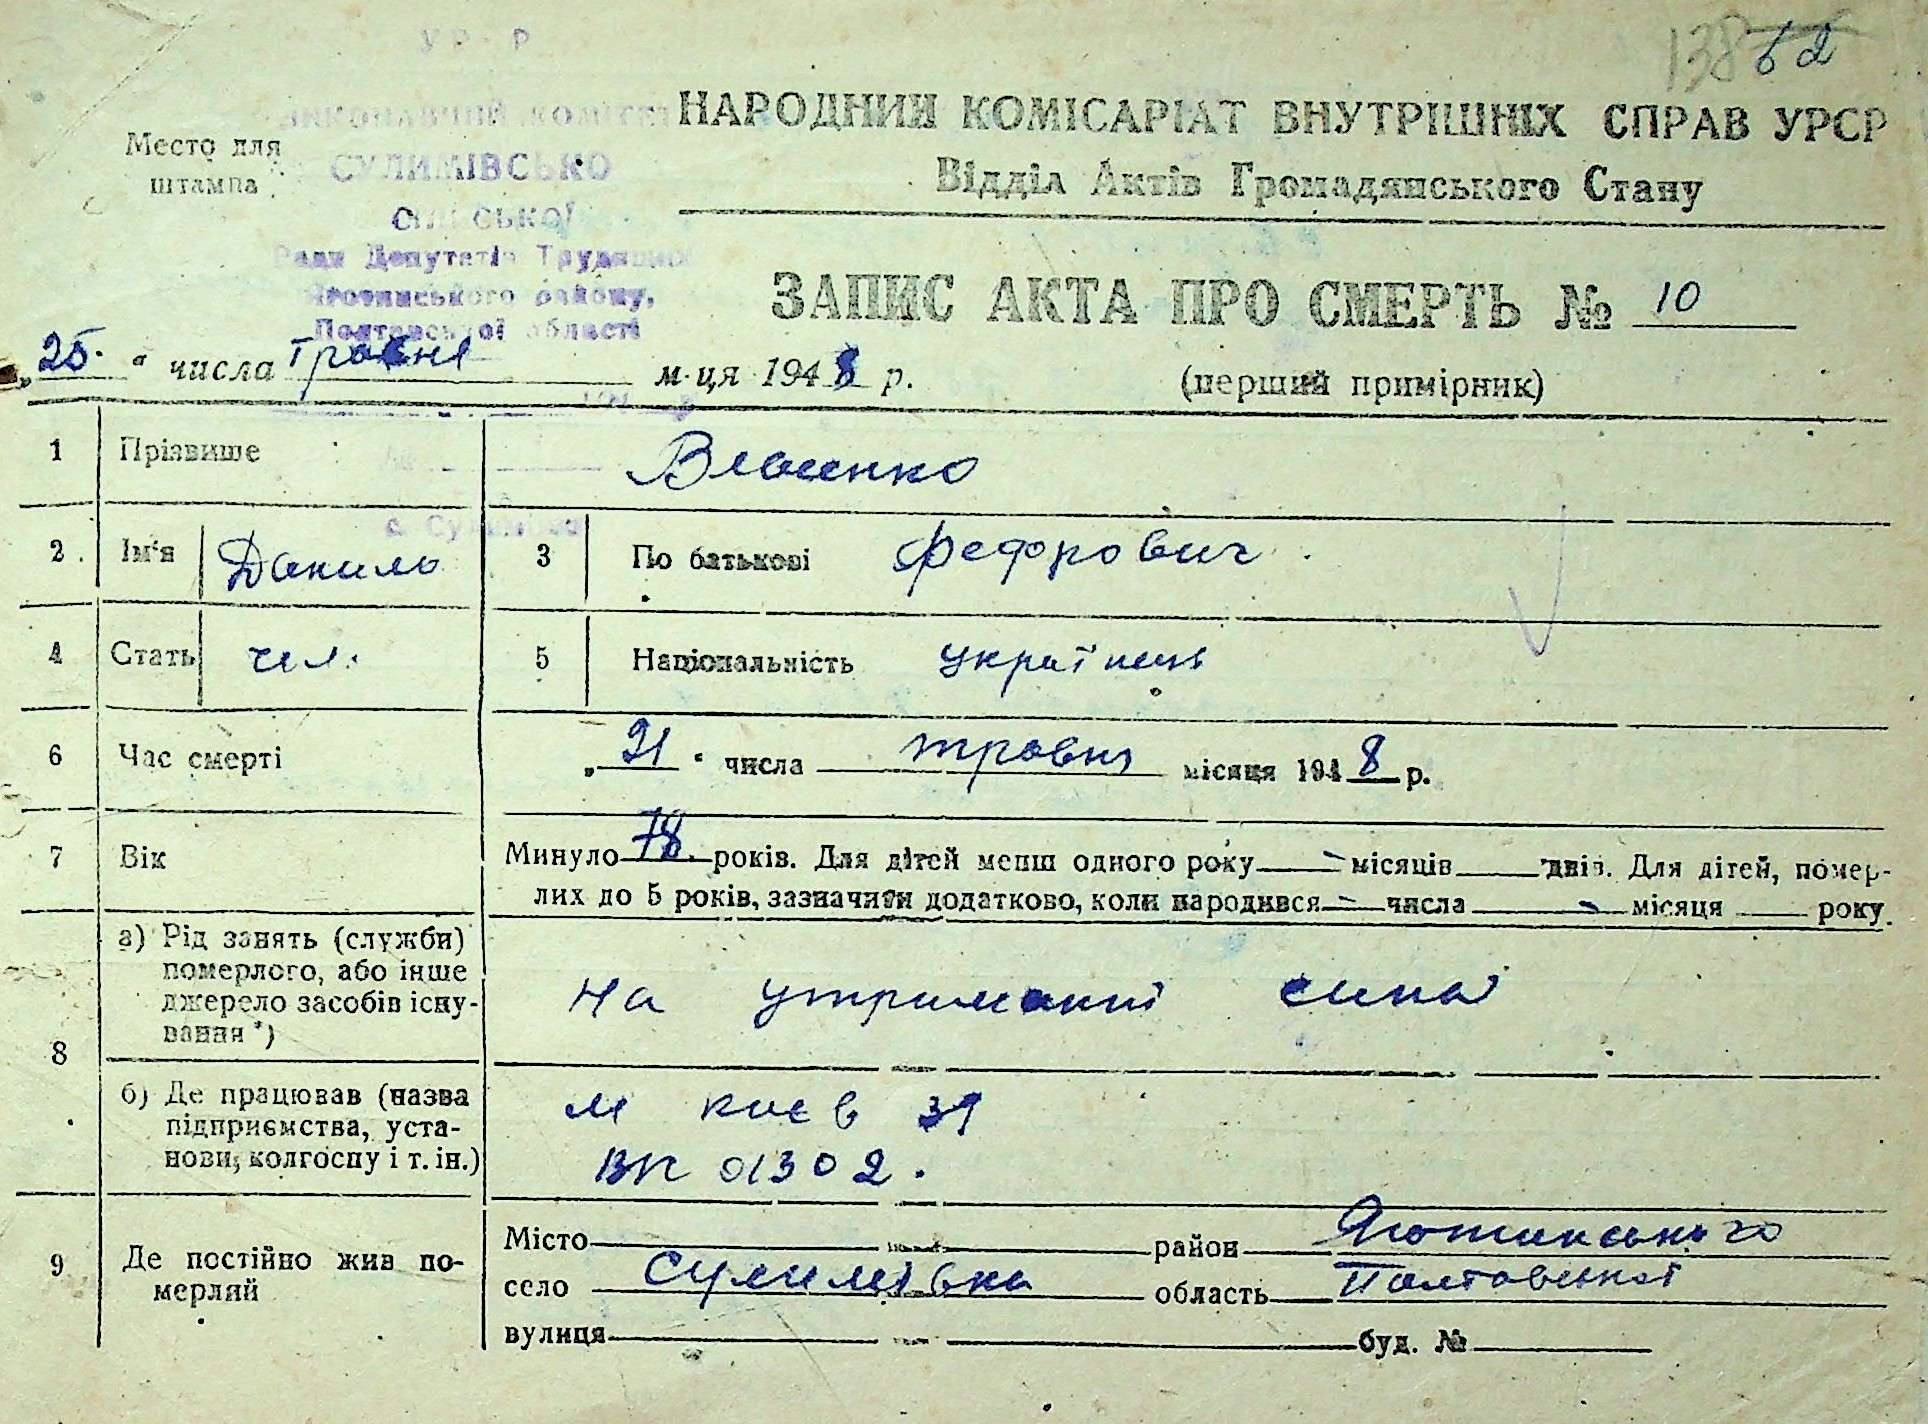 УРСР
138 62
ВИКОНАВЧИЙ КОМІТЕТ
НАРОДНИЙ КОМІСАРІАТ ВНУТРІШНІХ СПРАВ УРСР
Место для
штампа
СУЛИМІВСЬКО
Відділ Актів Громадянського Стану
СІЛЬСЬКОЇ
Ради Депутатів Трудящих
Яготинського району,
Полтавської області
ЗАПИС АКТА ПРО СМЕРТЬ № 10
„25" числа травня м-ця 1948 р.
(перший примірник)
1 Прізвище Власенко
с. Сулимівка
2. Ім'я Данило 3 По батькові Федорович
4 Стать чол. 5 Національність українець
6 Час смерті „21" числа травня місяця 1948 р.
7 Вік Минуло 78 років. Для дітей менш одного року - місяців днів. Для дітей, помер-
лих до 5 років, зазначити додатково, коли народився - числа - місяця року.
8 а) Рід занять (служби)
померлого, або інше
джерело засобів існу-
вання*)
на утриманні сина
б) Де працював (назва
підприємства, уста-
нови, колгоспу і т. ін.)
м Києв 39
ВК 01302.
9 Де постійно жив по-
мерлий
Місто район Яготинського
село Сулимівка область Полтавської
вулиця буд. №